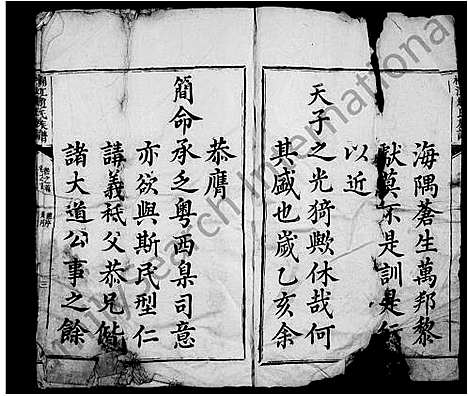 海隅蒼生萬邦黎
獻莫不是訓是行
以近
天子之光猗歟休哉何
其盛也歲乙亥余
恭膺
簡命承乏粵西臬司意
亦欲與斯民型仁
講義祗父恭兄偕
諸大道公事之餘